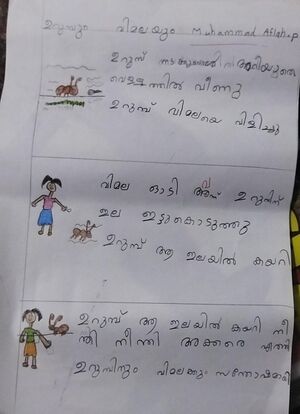 ഉറുമ്പും വിമലയും Muhammad Aflah.P
ഉറുമ്പ് നടക്കുമ്പോൾ അറിയാതെ
വെള്ളത്തിൽ വീണു
ഉറുമ്പ് വിമലയെ വിളിച്ചു
വിമല ഓടി വ ന്ന് ഉറുമ്പിന്
ഇല ഇട്ടുകൊടുത്തു
ഉറുമ്പ് ആ ഇലയിൽ കയറി
ഉറുമ്പ് ആ ഇലയിൽ കയറി നീ
ന്തി നീന്തി അക്കരെ എത്തി
ഉറുമ്പിനും വിമലക്കും സന്തോഷമായി